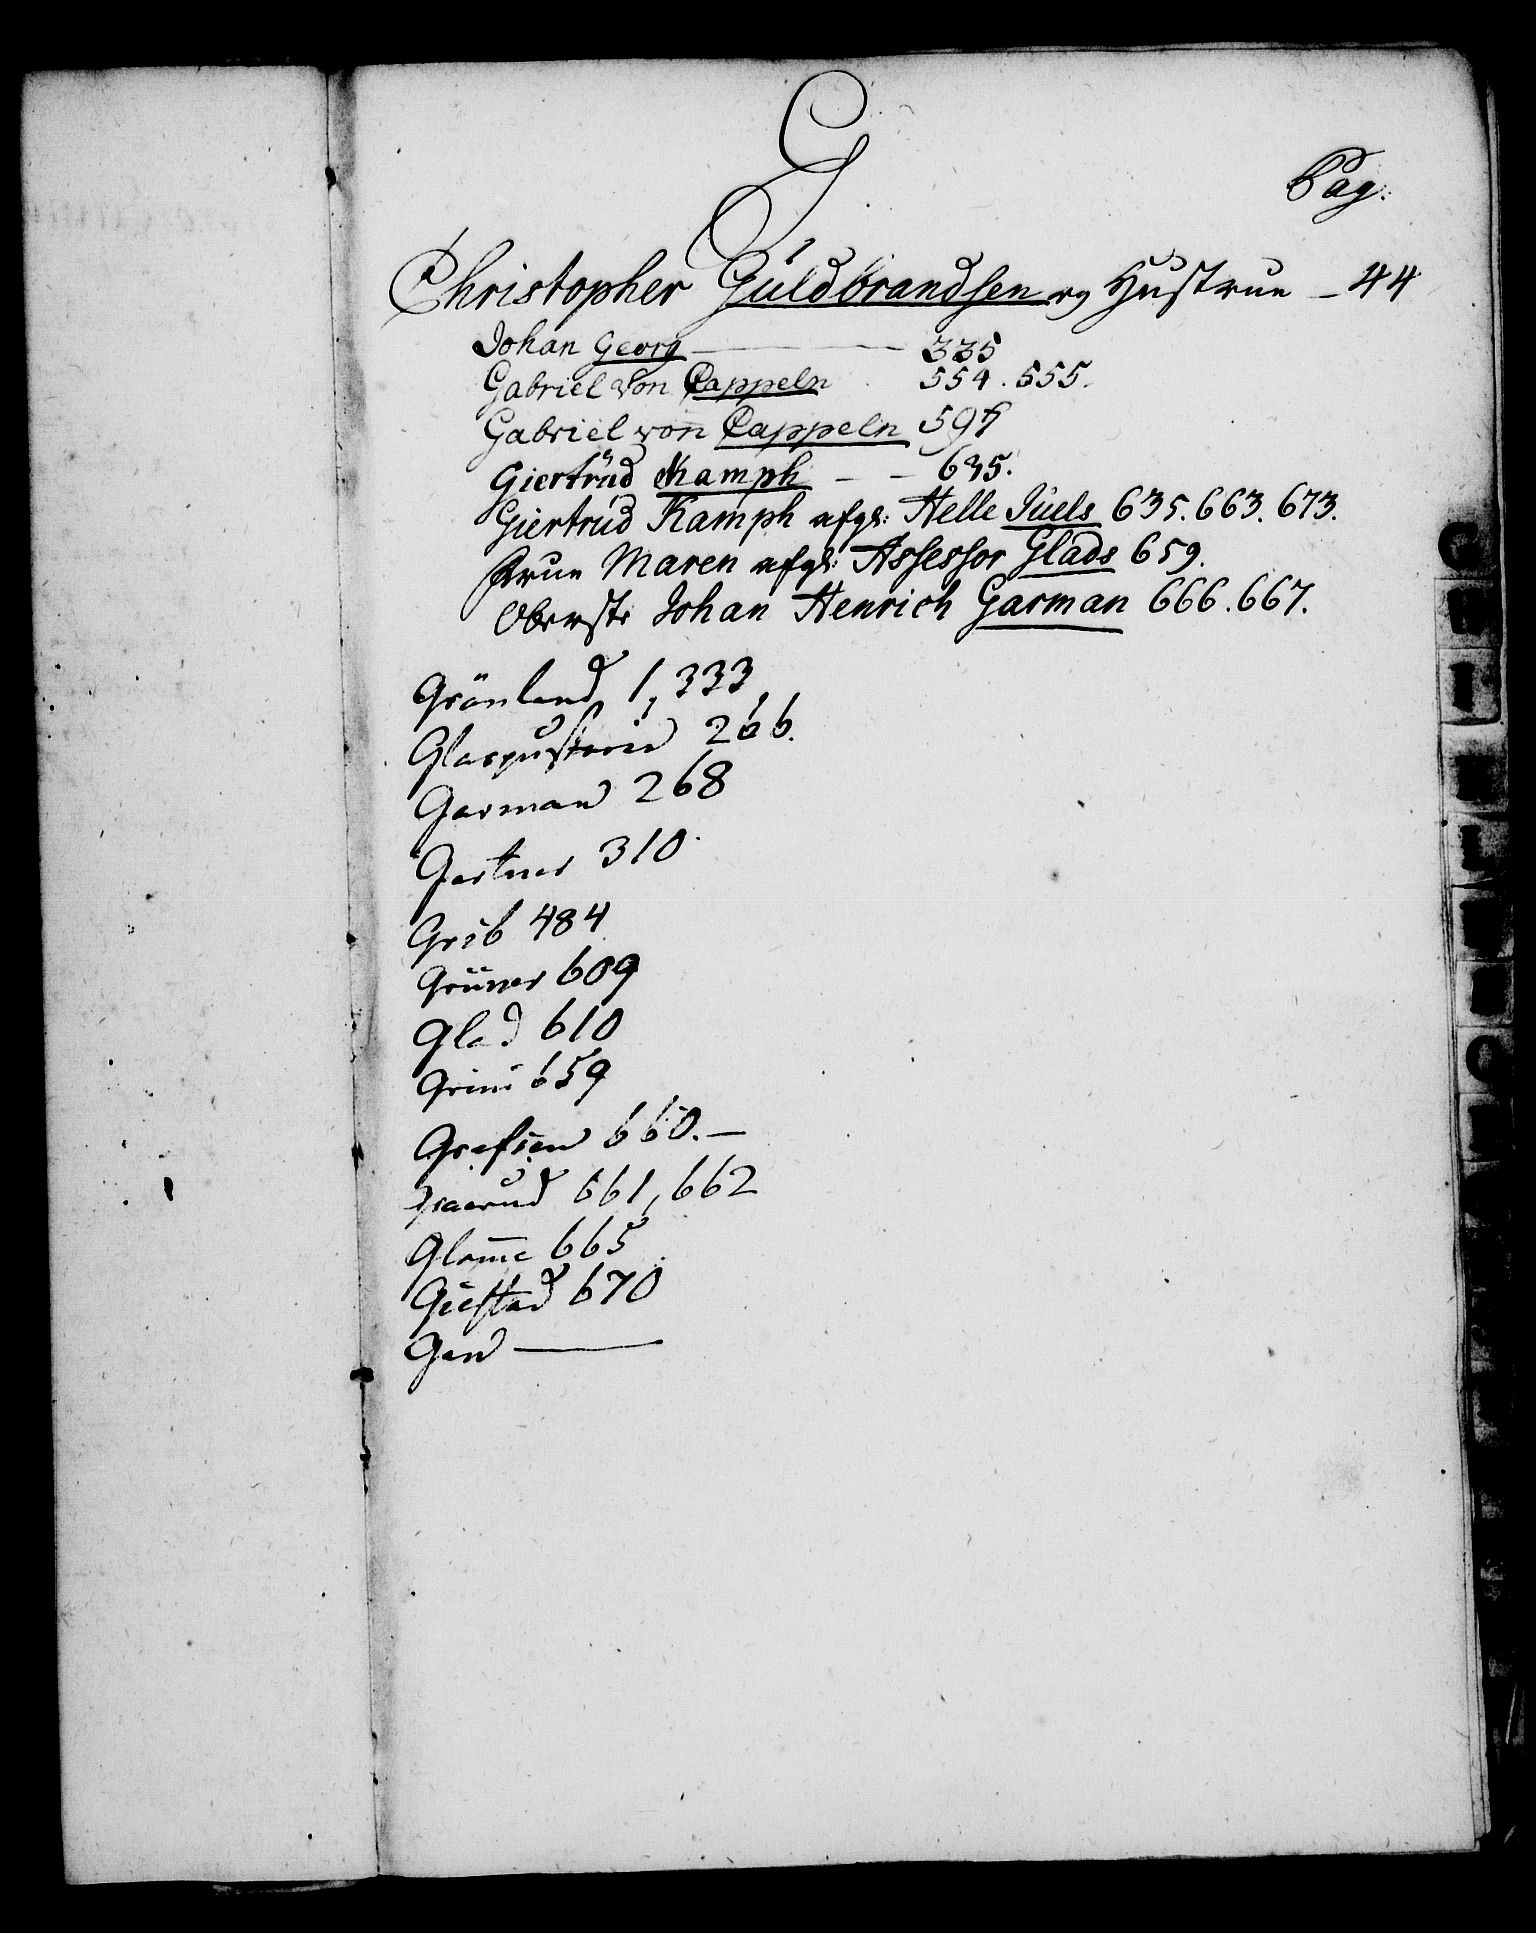 G
Pag:
Christopher Güldbrandsen og Hustrue – 44
Johan Georg — 335
Gabriel von Cappeln 554. 555.
Gabriel von Cappeln 597
Giertrüd Kamph – – 635.
Giertrüd Kamph afgl: Helle Jüels 635. 663. 673.
Frue Maren afgl: Assessor Glads 659.
Oberste Johan Henrich Garman 666. 667.
Grönland 1, 333
Glaspusterie 266.
Garman 268
Gartner 310
Grib 484
Grüner 609
Glad 610
Grini 659
Grefsen 660. —
661, 662
Glom̅e 665
Giestad 670